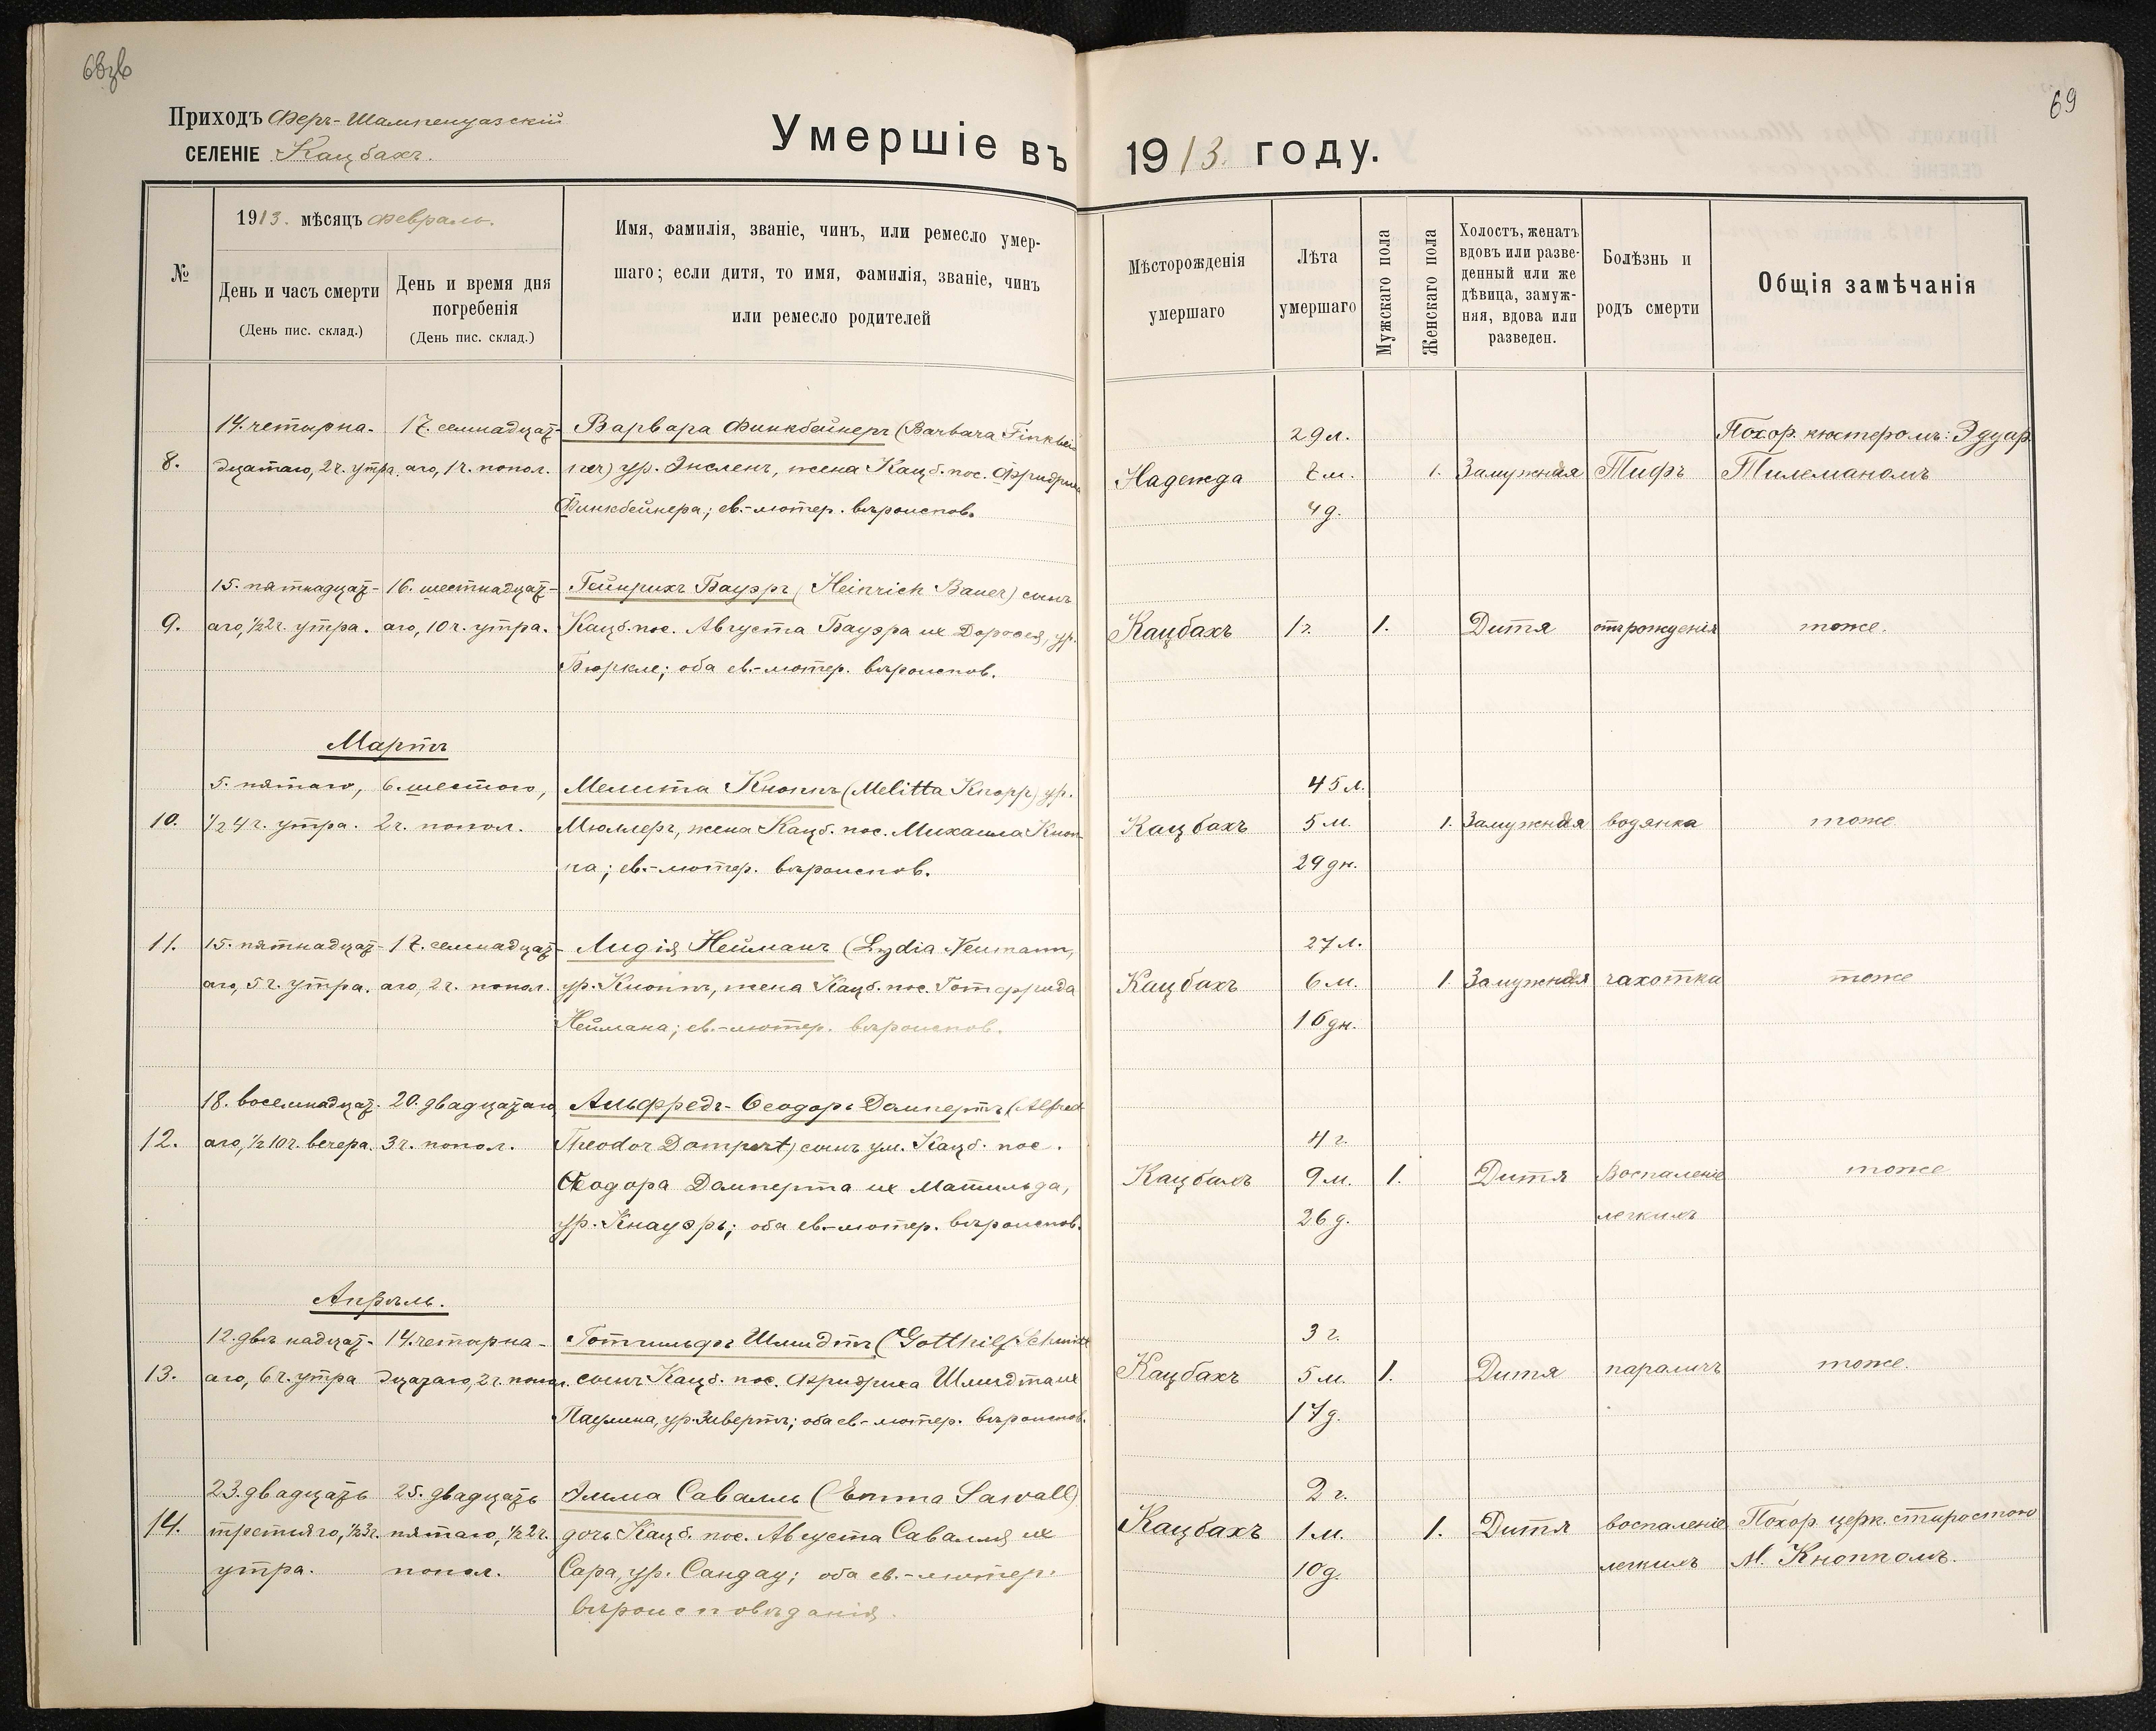 68об
69
Приходъ Феръ-Шампенуазскій
СЕЛЕНІЕ Кацбахъ.
Умершіе въ 1913. году.
№
1913. мѣсяцъ Февраль.
День и часъ смерти
(День пис. склад.)
День и время дня
погребенія
(День пис. склад.)
Имя, фамилія, званіе, чинъ, или ремесло умер-
шаго; если дитя, то имя, фамилія, званіе, чинъ
или ремесло родителей
Мѣсторожденія
умершаго
Лѣта
умершаго
Мужскаго пола
Женскаго пола
Холостъ, женатъ
вдовъ или разве-
денный или же
дѣвица, замуж-
няя, вдова или
разведен.
Болѣзнь и
родъ смерти
Общія замѣчанія
14. четырна- 17. семнадцат- Варвара Финкбейнеръ (Barbara Finkbei 29 л. Похор. кюстеромъ: Эдуар.
8. дцатаго, 2 ч. утра. аго, 1 ч. попол. ner) ур. Энсленъ, жена Кацб. пос. Фридриха Надежда 7 м. 1. Замужняя Тифъ Тилеманомъ
Финкбейнера; ев.-лютер. вѣроиспов. 4 д.
15. пятнадцат- 16. шестнадцат- Гейнрихъ Бауэръ (Heinrich Bauer) сынъ
9. аго, ½2 ч. утра. аго, 10 ч. утра. Кацб. пос. Августа Бауэра и ж Доровея, ур. Кацбахъ 1 г. 1. Дитя отъ рожденія тоже.
Бюркле; оба ев.-лютер. вѣроиспов.
Мартъ
5. пятаго, 6. шестого, Мелита Кноппъ (Melitta Knopp) ур. 45 л.
10. ½4 ч. утра. 2 ч. попол. Мюллеръ, жена Кацб. пос. Михаила Кноп- Кацбахъ 5 м. 1. Замужняя водянка тоже
па; ев.-лютер. вѣроиспов. 29 дн.
11. 15. пятнадцат- 17. семнадцат- Лидія Нейманъ (Lydia Neumann, 27 л.
аго, 5 ч. утра. аго, 2 ч. попол. ур. Кноппъ, жена Кацб. пос. Готфрида Кацбахъ 6 м. 1 Замужняя чахотка тоже
Неймана; ев.-лютер. вѣроиспов. 16 дн.
18. восемнадцат- 20. двадцатаго Альфредъ-Ѳеодоръ Домпертъ (Alfred
12. аго, ½10 ч. вечера. 3 ч. попол. Theodor Dompert) сынъ ум. Кацб. пос. 4 г.
Ѳеодора Домперта и ж Матильда, Кацбахъ 9 м. 1. Дитя Воспаленіе тоже
ур. Кнауэръ; оба ев.-лютер. вѣроиспов. 26 д. легкихъ
Апрѣль.
12. двѣнадцат- 14. четырна- Готгильфъ Шмидтъ (Gotthilf Schmidt 3 г.
13. аго, 6 ч. утра дцатаго, 2 ч. попол. сынъ Кацб. пос. Фридриха Шмидта и ж Кацбахъ 5 м. 1. Дитя параличъ тоже.
Паулина, ур. Зивертъ; оба ев.-лютер. вѣроиспов. 17 д.
23. двадцать 25. двадцать Эмма Савалль (Emma Sawall) 2 г.
14. третьяго, ½3 ч. пятаго, ½2 ч. дочь Кацб. пос. Августа Савалля и ж Кацбахъ 1 м. 1. Дитя воспаленіе Похор. церк. старостою
утра. попол. Сара, ур. Сандау; оба ев.-лютер. 10 д. легкихъ М. Кноппомъ.
вѣроисповѣданія.